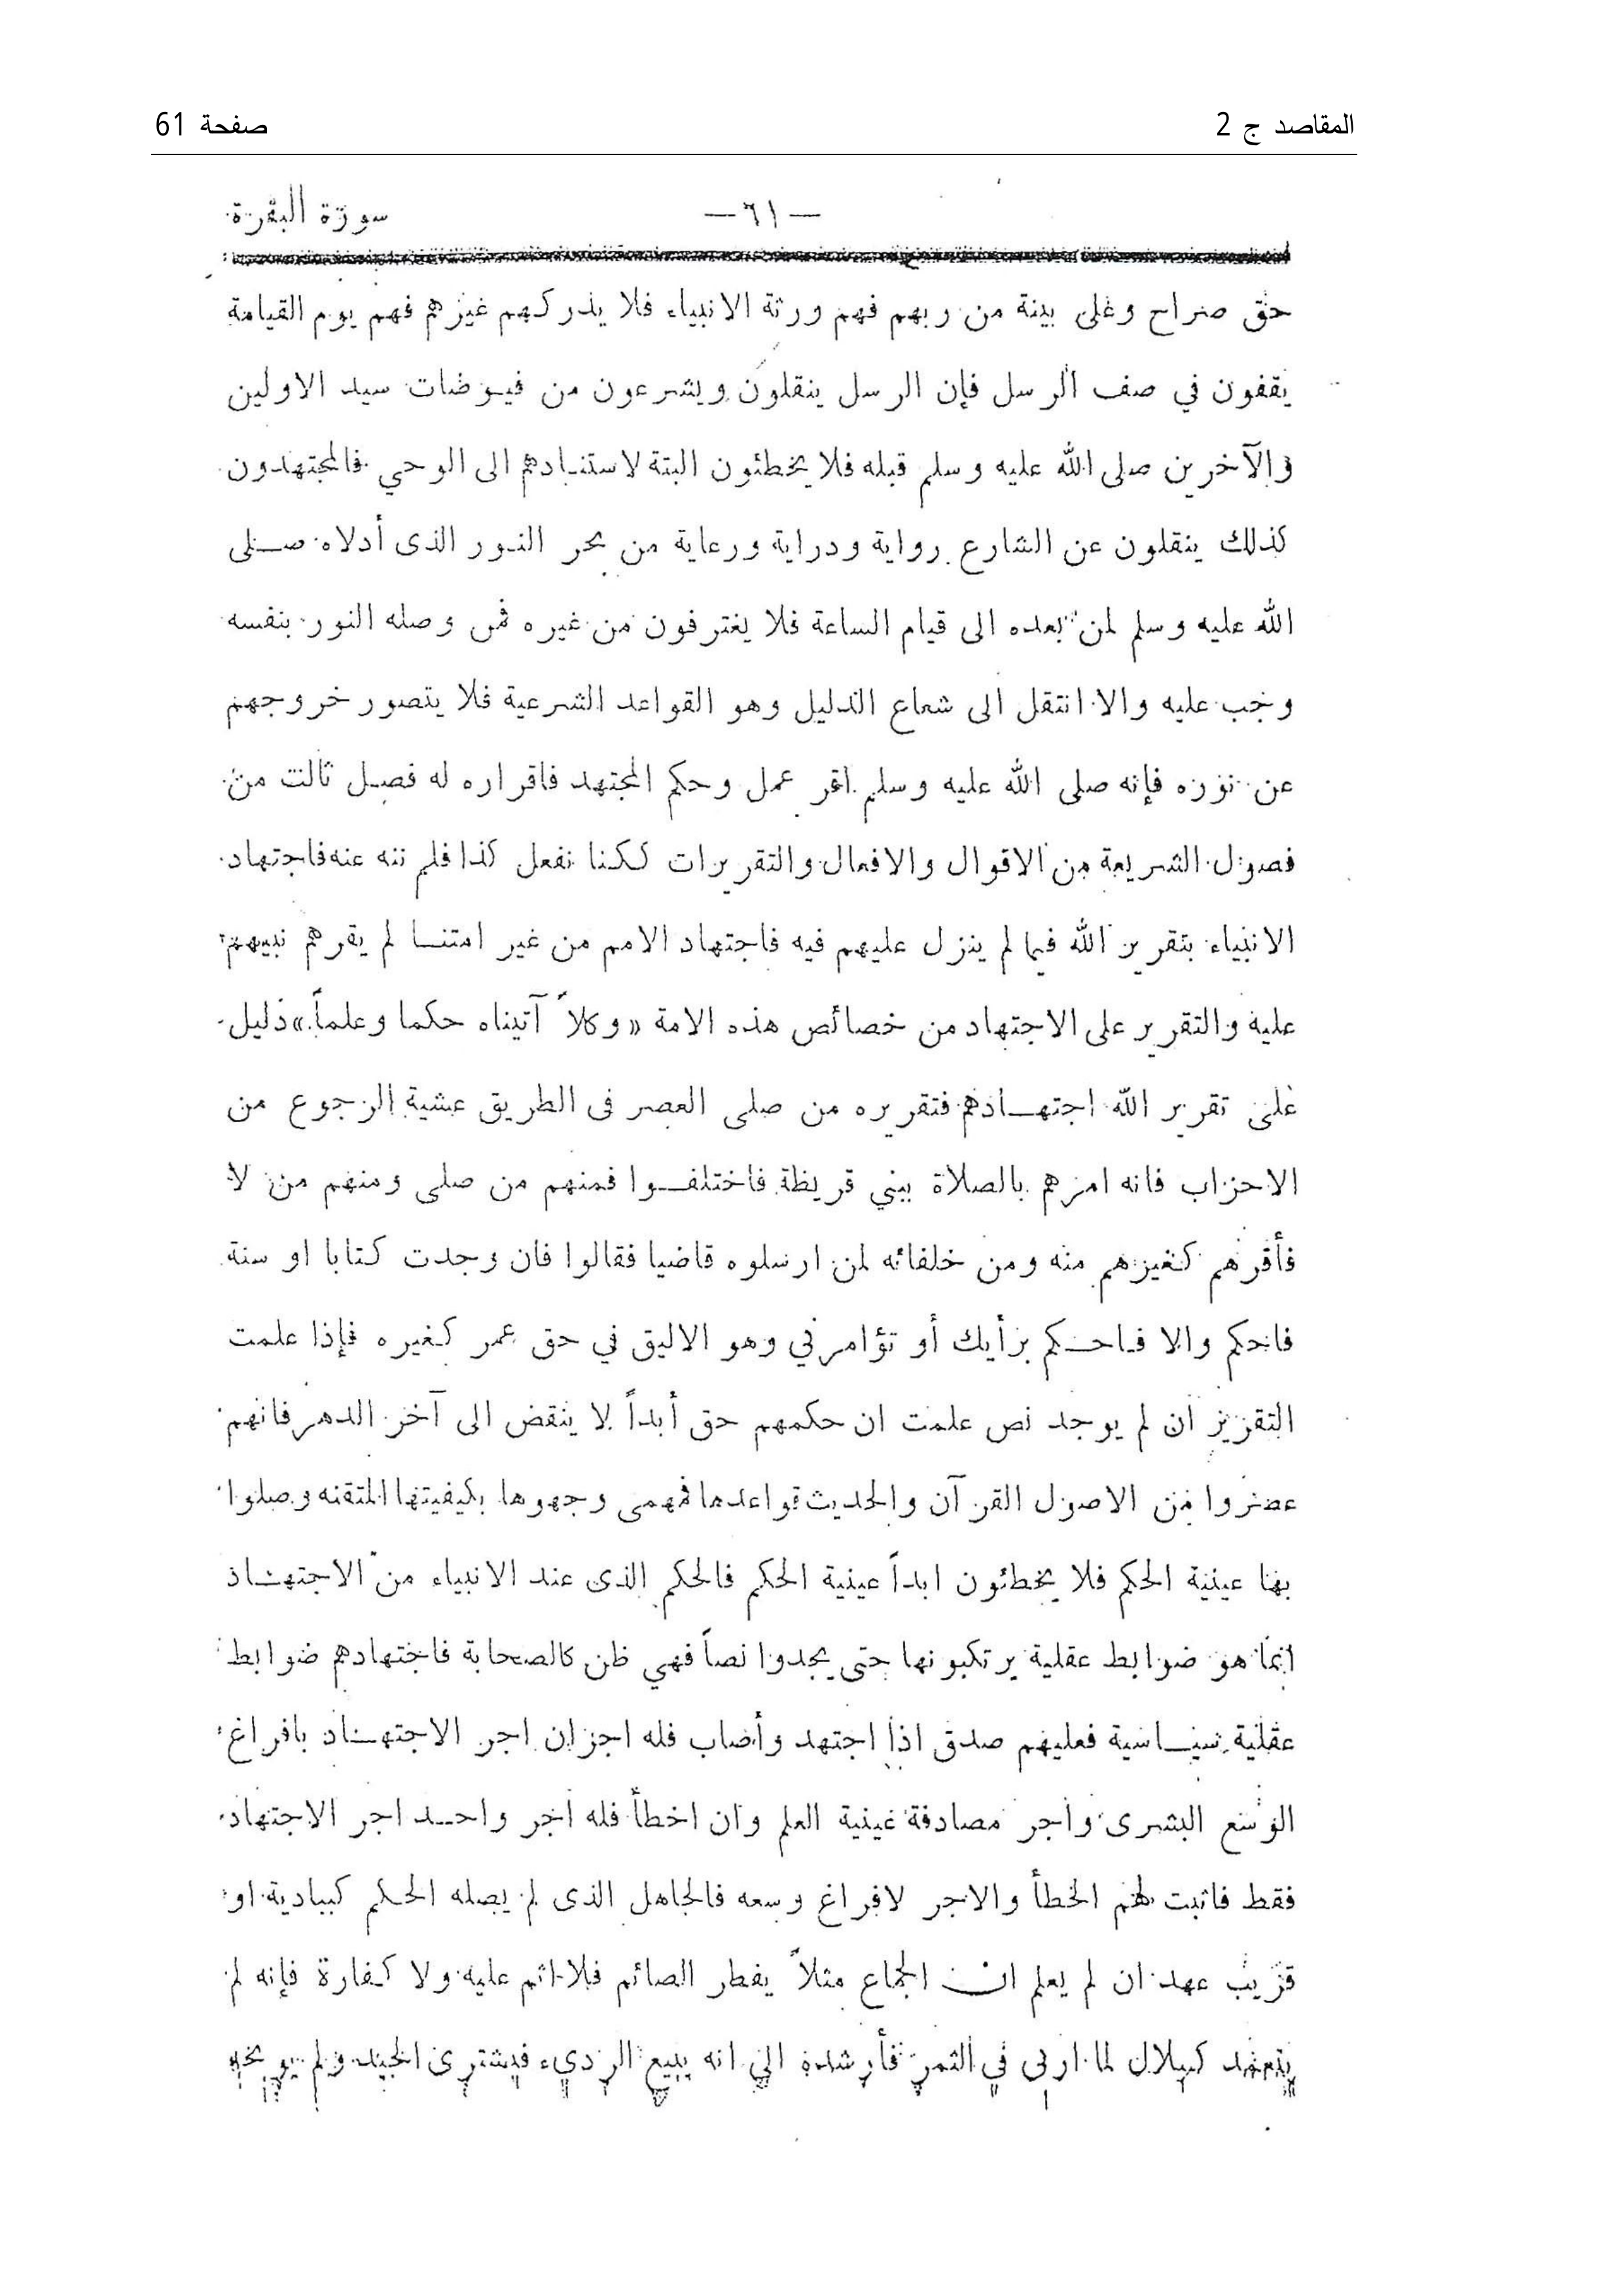 المقاصد ج 2
صفحة 61
— ٦١ —
سورة البقرة
حق صراح وعلى بينة من ربهم فهم ورثة الانبياء فلا يدركهم غيرهم فهم يوم القيامة
يقفون في صف الرسل فإن الرسل ينقلون ويشرعون من فيوضات سيد الاولين
والآخرين صلى الله عليه وسلم قبله فلا يخطئون البتة لاستنادهم الى الوحي فالمجتهدون
كذلك ينقلون عن الشارع رواية ودراية ورعاية من بحر النور الذى أدلاه صلى
الله عليه وسلم لمن بعده الى قيام الساعة فلا يغترفون من غيره فمن وصله النور بنفسه
وجب عليه والا انتقل الى شعاع الدليل وهو القواعد الشرعية فلا يتصور خروجهم
عن نوره فإنه صلى الله عليه وسلم اقر عمل وحكم المجتهد فاقراره له فصل ثالث من
فصول الشريعة من الاقوال والافعال والتقريرات ككنا نفعل كذا فلم ننه عنه فاجتهاد
الانبياء بتقرير الله فيما لم ينزل عليهم فيه فاجتهاد الامم من غير امتنا لم يقرهم نبيهم
عليه والتقرير على الاجتهاد من خصائص هذه الامة «وكلاً آتيناه حكما وعلماً» دليل
على تقرير الله اجتهادهم فتقريره من صلى العصر فى الطريق عشية الرجوع من
الاحزاب فانه امرهم بالصلاة ببني قريظة فاختلفوا فمنهم من صلى ومنهم من لا
فأقرهم كغيرهم منه ومن خلفائه لمن ارسلوه قاضيا فقالوا فان وجدت كتابا او سنة
فاحكم والا فاحكم برأيك أو تؤامرني وهو الاليق في حق عمر كغيره فإذا علمت
التقرير ان لم يوجد نص علمت ان حكمهم حق أبداً لا ينقض الى آخر الدهر فانهم
عصروا من الاصول القرآن والحديث قواعدهما فهمى وجهوها بكيفيتها المتقنه وصلوا
بها عينية الحكم فلا يخطئون ابداً عينية الحكم فالحكم الذى عند الانبياء من الاجتهاد
انما هو ضوابط عقلية يرتكبونها حتى يجدوا نصاً فهي ظن كالصحابة فاجتهادهم ضوابط
عقلية سياسية فعليهم صدق اذا اجتهد وأصاب فله اجران اجر الاجتهاد بافراغ
الوسع البشرى وأجر مصادفة عينية العلم وان اخطأ فله اجر واحد اجر الاجتهاد
فقط فاثبت لهم الخطأ والاجر لافراغ وسعه فالجاهل الذى لم يصله الحكم كببادية او
قريب عهد ان لم يعلم ان الجماع مثلاً يفطر الصائم فلا اثم عليه ولا كفارة فإنه لم
يتعمد كبلال لما اربى في الثمر فأرشده الى انه يبيع الرديء فيشترى الجيد ولم يوبخه